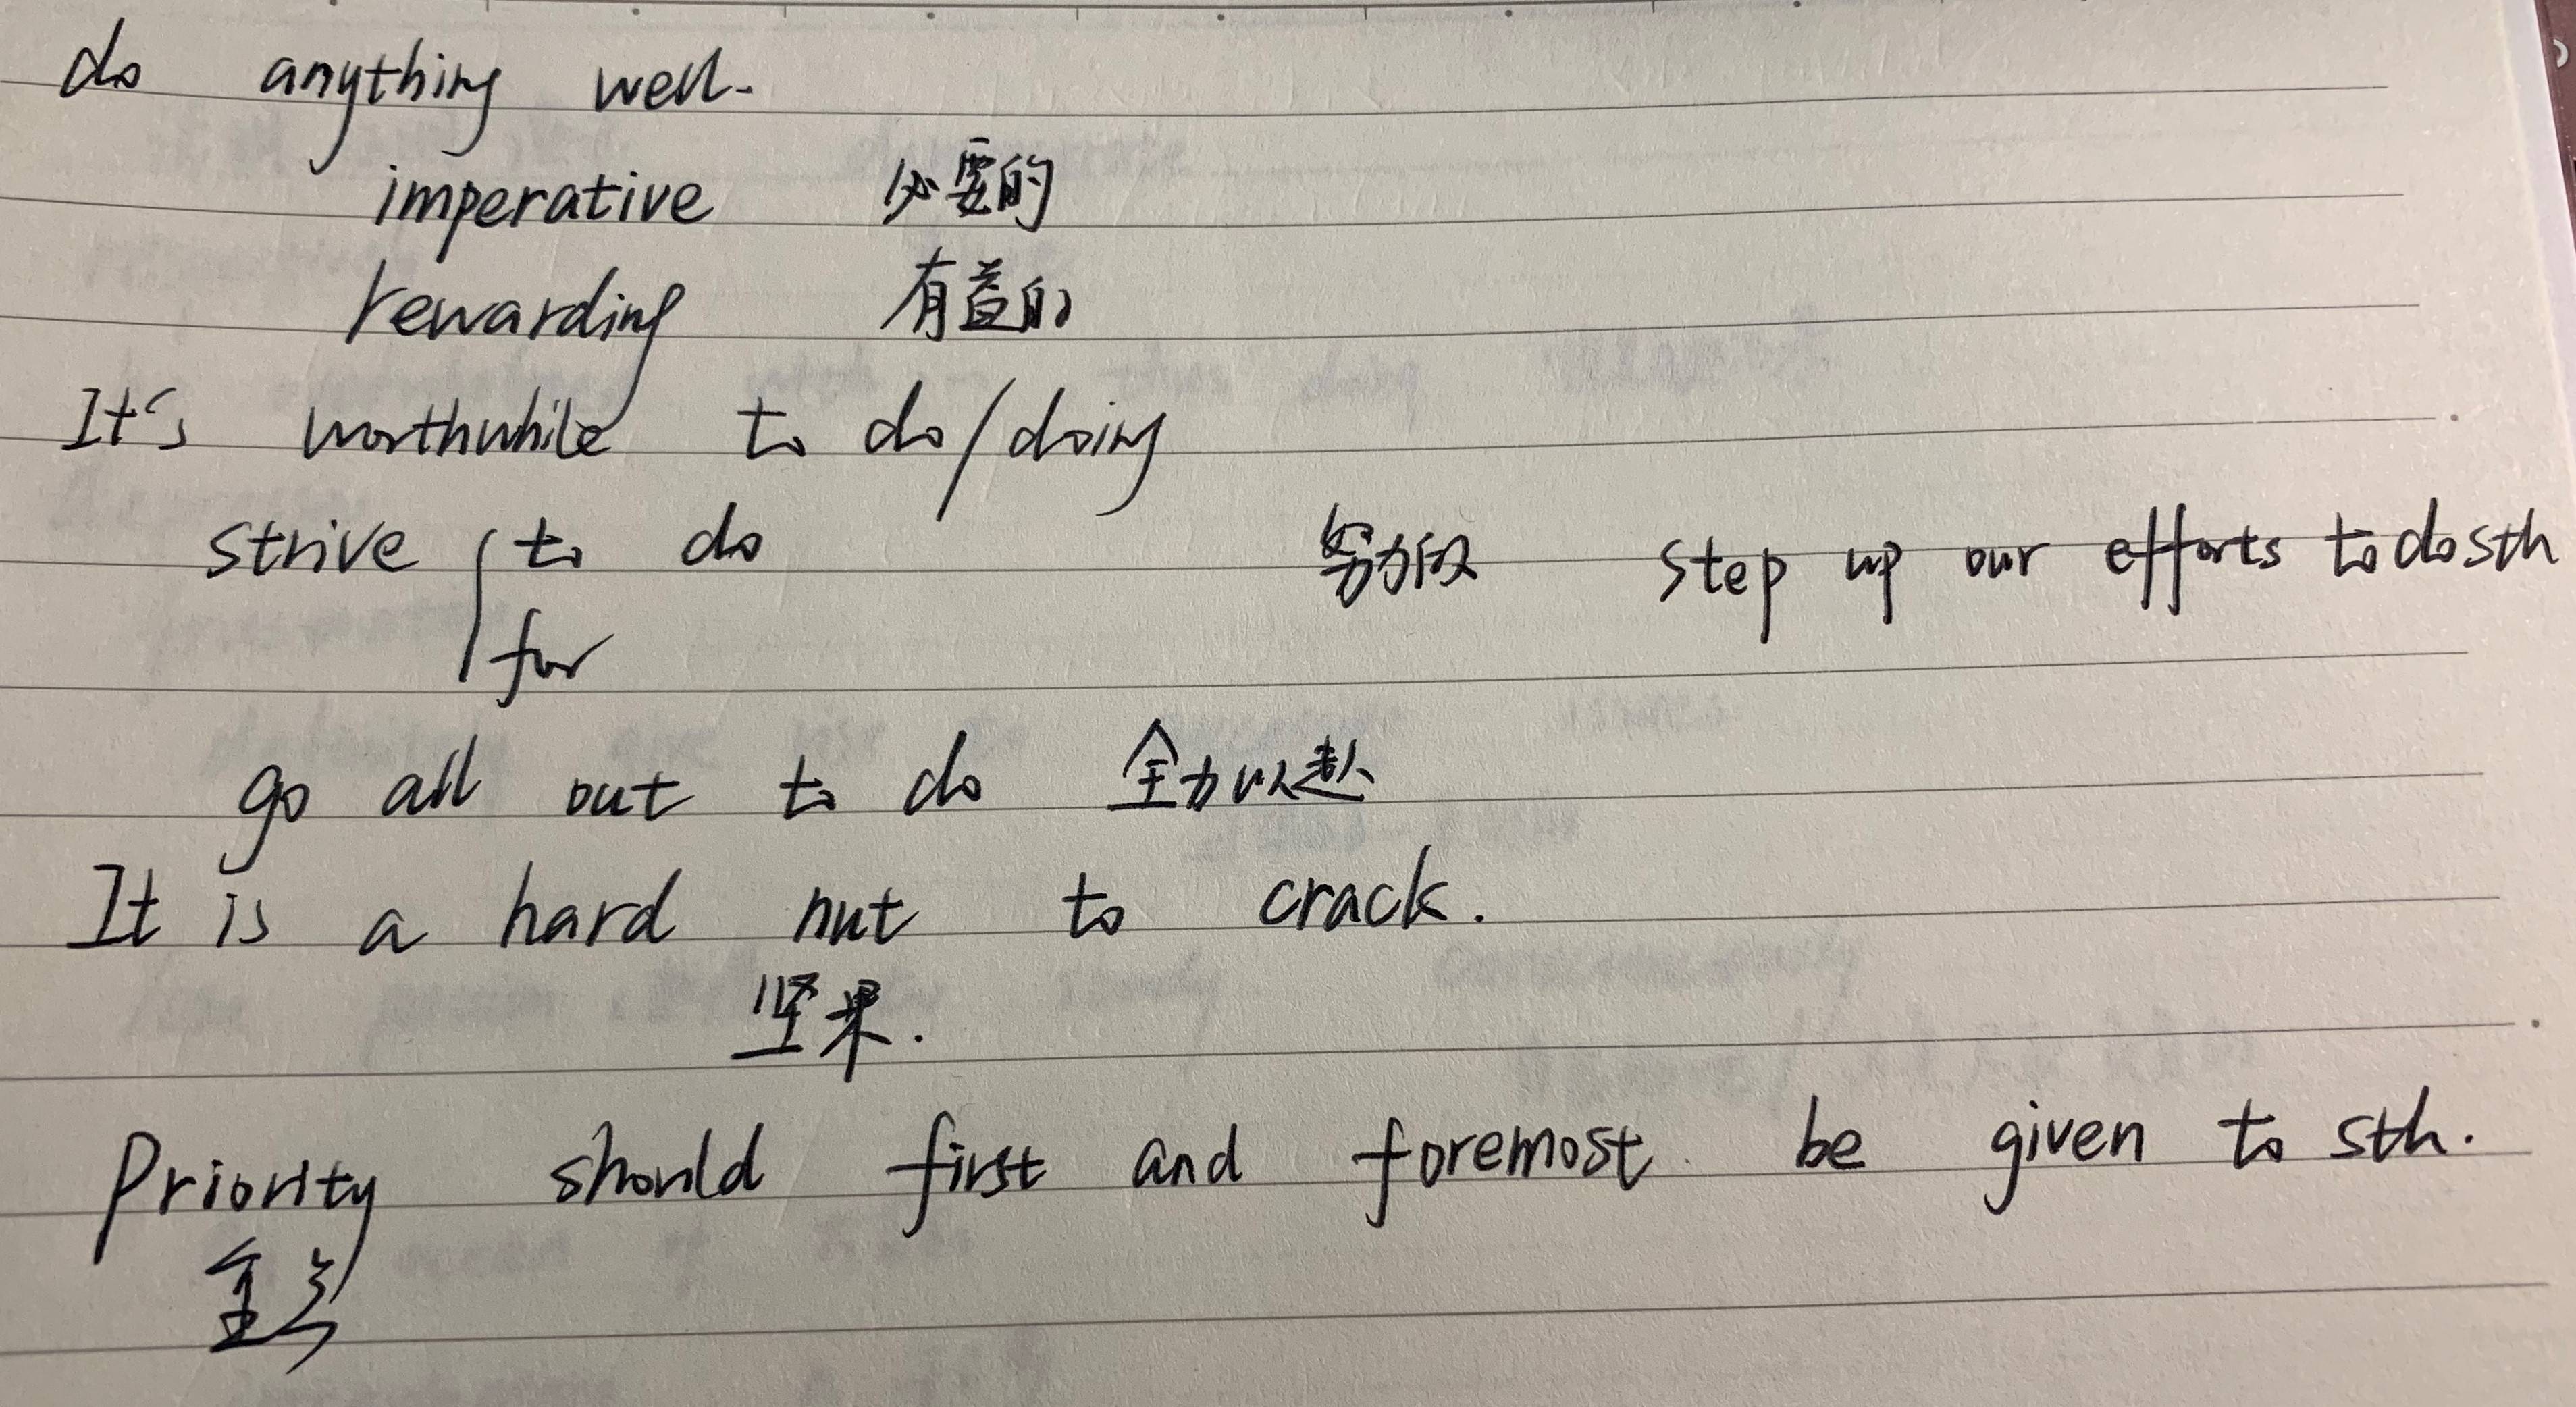 do anything well.
imperative 必要的
rewarding 有益的
It's worthwhile to do/doing
strive to do 努力做 step up our efforts to do sth
for
go all out to do 全力以赴
It is a hard nut to crack.
坚果.
Priority should first and foremost be given to sth.